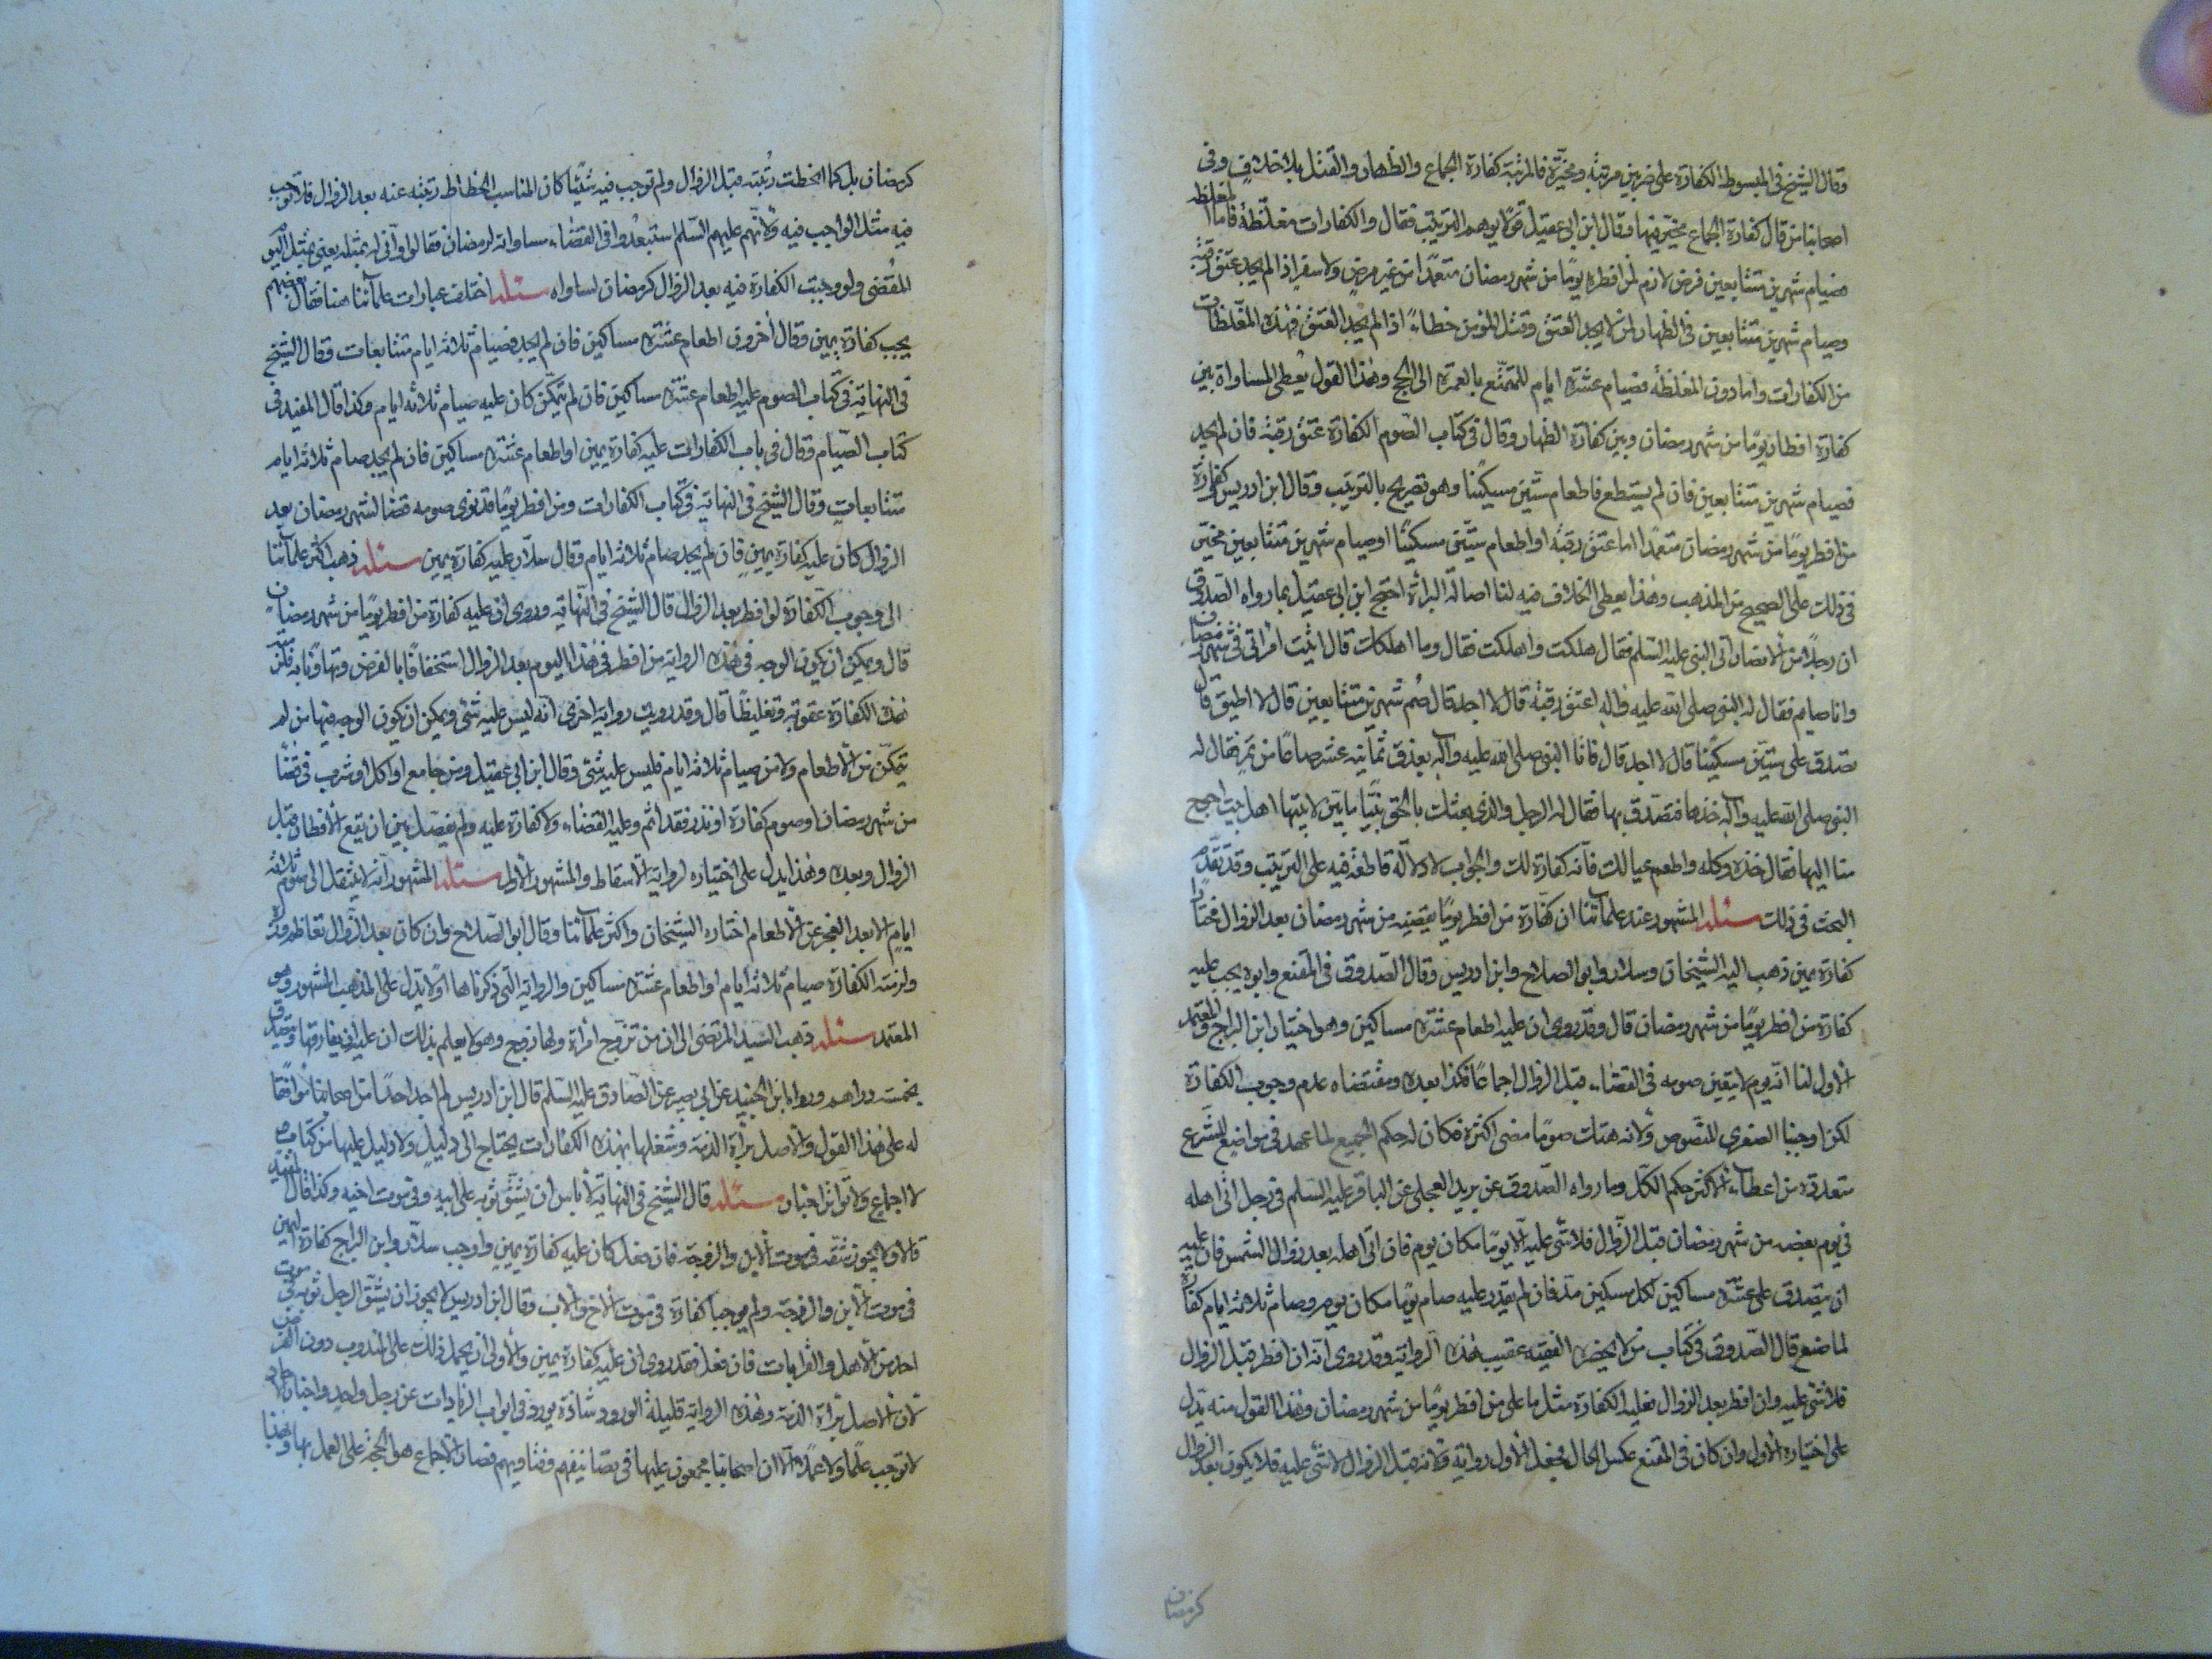 وقال الشيخ في المبسوط الكفارة على ضربين مرتبة ومخيّرة فالمرتبة كفارة الجماع والظهار والقتل بلا خلاف وفي
اصحابنا من قال كفارة الجماع مخير فيها وقال ابن ابي عقيل قولا يوهم الترتيب فقال والكفارات مغلّظة فاما المغلظ
فصيام شهرين متتابعين فرض لازم لمن افطر يومًا من شهر رمضان متعمدًا من غير مرض ولا سفر اذا لم يجد عتق رقبة
وصيام شهرين متتابعين في الظهار لمن لا يجد العتق وقتل المؤمن خطاءً اذا لم يجد العتق فهذه المغلّظات
من الكفارات واما دون المغلظة فصيام عشرة ايام للمتمتّع بالعمرة الى الحج وهذا القول يُعطى المساواة بين
كفارة افطار يومًا من شهر رمضان وبين كفارة الظهار وقال في كتاب الصوم الكفارة عتق رقبة فان لم يجد
فصيام شهرين متتابعين فان لم يستطع فاطعام ستين مسكينًا وهو تصريح بالترتيب وقال ابن ادريس كفارة
من افطر يومًا من شهر رمضان متعمدًا اما عتق رقبة او اطعام ستين مسكينًا او صيام شهرين متتابعين مخيّر
في ذلك على الصحيح من المذهب وهذا يعطى الخلاف فيه لنا اصالة البراءة احتج ابن ابي عقيل بما رواه الصدوق
ان رجلًا من الانصار اتى النبي عليه السّلم فقال هلكت واهلكت فقال وما اهلكك قال اتيت امراتي في شهر رمضان
وانا صايم فقال له النبي صلى الله عليه واله اعتق رقبة قال لا اجد قال صُم شهرين متتابعين قال لا اطيق قال
تصدق على ستين مسكينًا قال لا اجد قال فاتا النبي صلى الله عليه واله بعذق ثمانية عشر صاعًا من تمر فقال له
النبي صلى الله عليه واله خذها فتصدّق بها فقال له الرجل والذي بعثك بالحق نبيًّا ما بين لابيتها اهل بيت احوج
منا اليها فقال خذه وكله واطعم عيالك فانه كفارة لك والجواب لا دلالة قاطعة فيه على الترتيب وقد تقدّم
البحث في ذلك مسئلة المشهور عند علمائنا ان كفارة من افطر يومًا يقضيه من شهر رمضان بعد الزوال مختارًا
كفارة يمين ذهب اليه الشيخان وسلار وابو الصلاح وابن ادريس وقال الصّدوق في المقنع وابوه يجب عليه
كفارة من افطر يومًا من شهر رمضان قال وقد روى ان عليه اطعام عشرة مساكين وهو اختيار ابن البراج والمعتمد
الاول لنا انّه يوم لا يتعين صومه في القضاء قبل الزوال اجماعًا فكذا بعده ومقتضاه عدم وجوب الكفارة
لكن اوجبنا الصغرى للنصوص ولانه هتك صومًا مضى اكثره فكان له حكم الجميع لما عهد في مواضع للشرع
متعددة من اعطاء الاكثر حكم الكل وما رواه الصّدوق عن بريد العجلي عن الباقر عليه السّلم في رجل اتى اهله
في يوم يقضيه من شهر رمضان قبل الزّوال فلا شيء عليه الا يومًا مكان يوم فان اتى اهله بعد زوال الشمس فان عليه
ان يتصدق على عشرة مساكين لكل مسكين مدّ فان لم يقدر عليه صام يومًا مكان يوم وصام ثلاثة ايام كفارة
لما صنع قال الصّدوق في كتاب من لا يحضره الفقيه عقيب هذه الرّواية وقد روى انه ان افطر قبل الزوال
فلا شيء عليه وان افطر بعد الزوال فعليه الكفارة مثل ما على من افطر يومًا من شهر رمضان وهذا القول منه يدل
على اختياره الاول وان كان في المقنع عكس الحال فجعل الاول رواية ولانه قبل الزوال لا شيء عليه فلا يكون بعد الزوال
كرمضان
كرمضان بل كما انحطت رُتبته قبل الزوال ولم توجب فيه شيئًا كان المناسب انحطاط رتبته عنه بعد الزوال فلا توجب
فيه مثل الواجب فيه ولانهم عليهم السّلم استبعدوا في القضاء مساواته لرمضان فقالوا وانى له بمثله يعنى بمثل اليوم
المقضى ولو وجبت الكفارة فيه بعد الزوال كرمضان لساواه مسئلة اختلف عبارات علمائنا هنا فقال بعضهم
يجب كفارة يمين وقال آخرون اطعام عشرة مساكين فان لم يجد فصيام ثلاثة ايام متتابعات وقال الشيخ
في النهاية في كتاب الصوم عليه اطعام عشرة مساكين فان لم يتمكّن كان عليه صيام ثلاثة ايام وكذا قال المفيد في
كتاب الصّيام وقال في باب الكفارات عليه كفارة يمين او اطعام عشرة مساكين فان لم يجد صام ثلاثة ايام
متتابعات وقال الشيخ في النهاية في كتاب الكفارات ومن افطر يومًا قد نوى صومه قضا لشهر رمضان بعد
الزوال كان عليه كفارة يمين فان لم يجد صام ثلاثة ايام وقال سلّار عليه كفارة يمين مسئلة ذهب اكثر علمائنا
الى وجوب الكفارة لو افطر بعد الزوال قال الشيخ في النّهاية وروى ان عليه كفارة من افطر يومًا من شهر رمضان
قال ويمكن ان يكون الوجه في هذه الرواية من افطر في هذا اليوم بعد الزوال استخفافًا بالفرض وتهاونًا به فلزمته
هذه الكفارة عقوبة وتغليظًا قال وقد رويت رواية اخرى انّه ليس عليه شيء ويمكن ان يكون الوجه فيها من لم
يتمكّن من الاطعام ولا من صيام ثلاثة ايام فليس عليه شيء وقال ابن ابي عقيل ومن جامع او اكل او شرب في قضًا
من شهر رمضان او صوم كفارة او نذر فقد اثم وعليه القضاء ولا كفارة عليه ولم يفصّل بين ان يقع الافطار قبل
الزوال وبعده وهذا يدل على اختياره لرواية الاسقاط والمشهور الاول مسئلة المشهور انه لا ينتقل الى صوم ثلاثة
ايام الا بعد العجز عن الاطعام اختاره الشيخان واكثر علمائنا وقال ابو الصّلاح وان كان بعد الزّوال تعاظم وزره
ولزمته الكفارة صيام ثلاثة ايام او اطعام عشرة مساكين والرواية التي ذكرناها اولا تدل على المذهب المشهور وهو
المعتمد مسئلة ذهب السّيد المرتضى الى ان من تزوج امراة ولها زوج وهو لا يعلم بذلك ان عليه ان يفارقها ويتصدق
بخمسة دراهم ورواه ابن الجنيد عن ابي بصير عن الصّادق عليه السّلم قال ابن ادريس لم اجد احدًا من اصحابنا موافقًا
له على هذا القول والاصل براءة الذمة وشغلها بهذه الكفارات يحتاج الى دليل ولا دليل عليها من كتاب
لا اجماع ولا تواتر اخبار مسئلة قال الشيخ في النهاية لا باس ان يشقّ ثوبه على ابيه وفي موت اخيه وكذا قال المفيد
قالا ولا يجوز شقّه في موت الابن والزوجة فان فعل كان عليه كفارة يمين واوجب سلار وابن البراج كفارة اليمين
في موت الابن والزوجة ولم يوجبا كفارة في موت الاخ والاب وقال ابن ادريس لا يجوز ان يشقّ الرجل ثوبه في موت
احد من الاهل والقرابات فان فعل فقد روى ان عليه كفارة يمين والاولى ان يحمل ذلك على المندوب دون الفرض
لان الاصل براءة الذمة وهذه الرواية قليلة الورود شاذة يورد في ابواب الزيادات عن رجل واحد واخبار الاحاد
لا توجب علمًا ولا عملًا الا ان اصحابنا مجمعون عليها في تصانيفهم وفتاويهم فصار الاجماع هو الحجة على العمل بها وبهذا